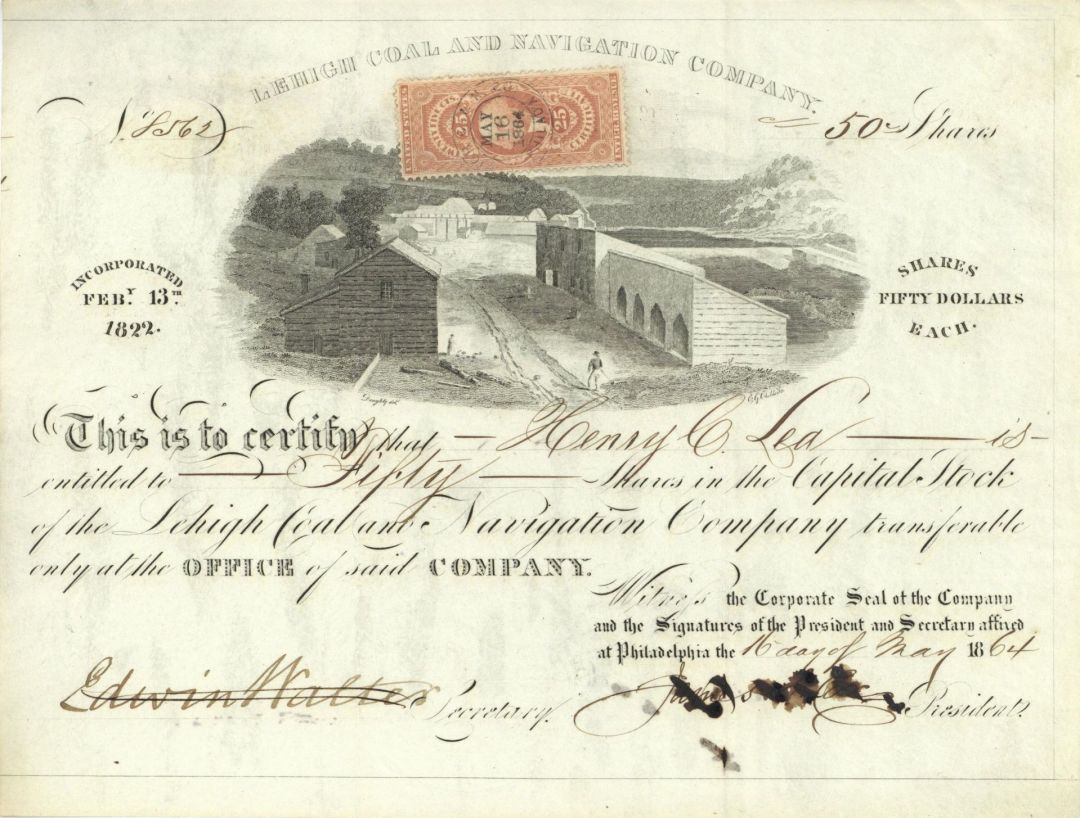 LEHIGH COAL AND NAVIGATION COMPANY.
No. 8562
50 Shares
25 CERTIFICATE 25
MAY
16
1864
INCORPORATED
FEBY. 13TH.
1822.
SHARES
FIFTY DOLLARS
EACH.
This is to certify that — Henry C. Lea — is
entitled to — Fifty — Shares in the Capital Stock
of the Lehigh Coal and Navigation Company transferable
only at the OFFICE of said COMPANY.
Witness the Corporate Seal of the Company
and the Signatures of the President and Secretary affixed
at Philadelphia the 16 day of May 1864
Edwin Walter Secretary.
James President.